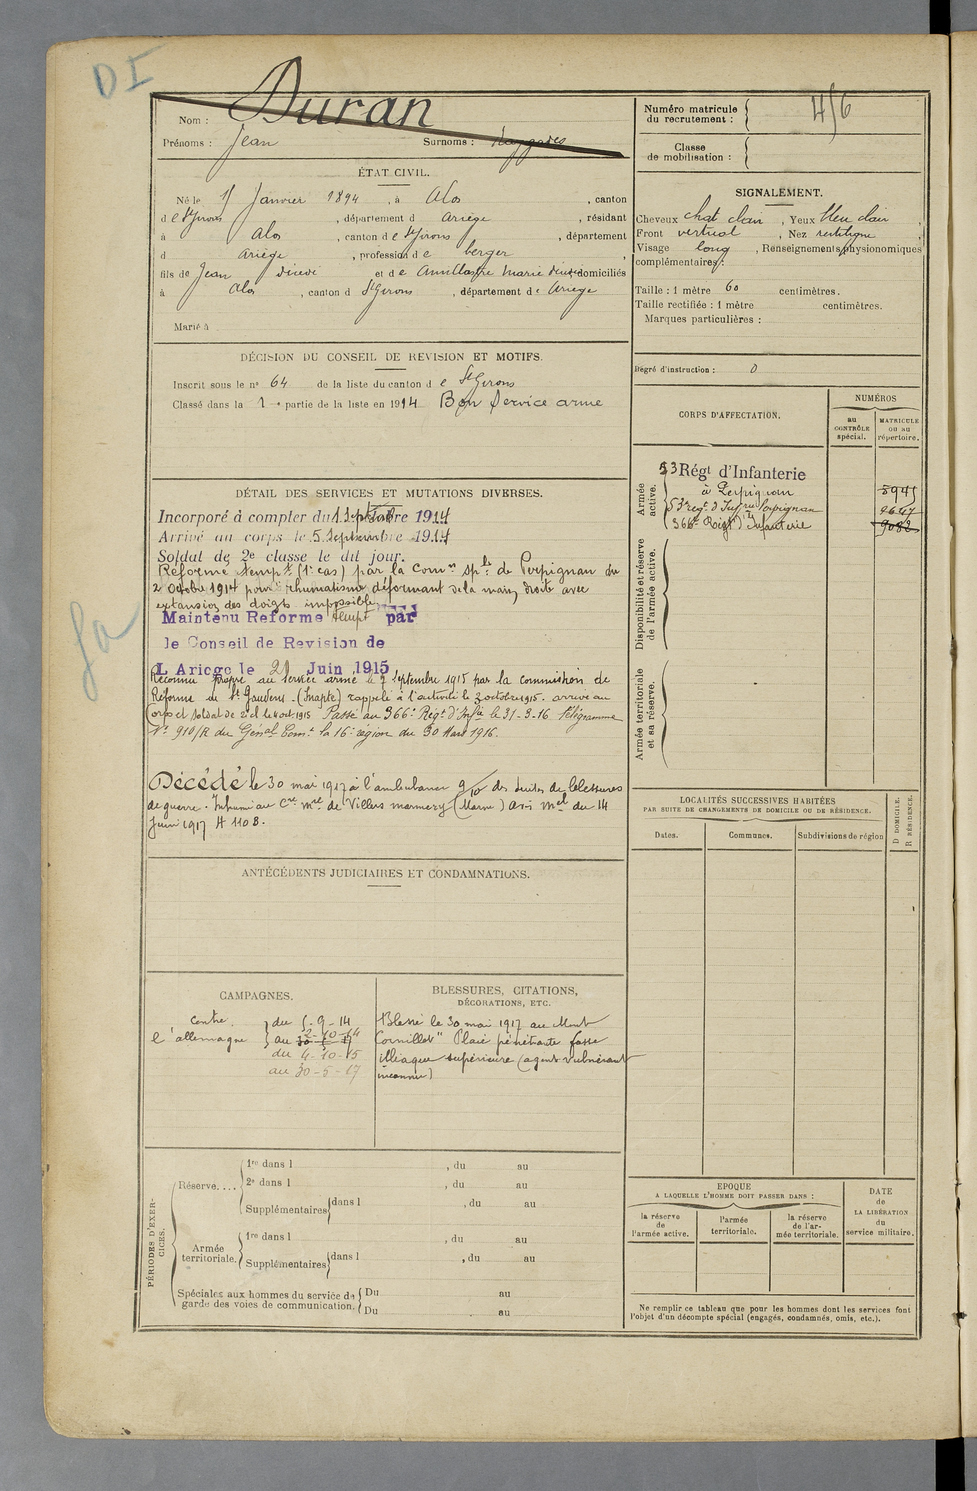 DI
Nom : Duran
Prénoms : Jean Surnoms :
ÉTAT CIVIL.
Né le 1 Janvier 1894, à Alos, canton
d e St Girons, département d Ariège, résidant
à Alos, canton d e St Girons, département
d Ariège, profession d e berger,
fils de Jean décédé et d e Marie domiciliés
à Alos, canton d St Girons, département d e Ariège
Marié à
DÉCISION DU CONSEIL DE REVISION ET MOTIFS.
Inscrit sous le nº 64 de la liste du canton d e St Girons
Classé dans la 1 e partie de la liste en 1914 Bon Service armé
DÉTAIL DES SERVICES ET MUTATIONS DIVERSES.
Incorporé à compter du 1 Septembre 1914
Arrivé au corps le 5 Septembre 1914
Soldat de 2e classe le dit jour.
Réformé tempre (1er cas) par la Comon sple de Perpignan du
2 Octobre 1914 pour "rhumatisme déformant de la main droite avec
extension des doigts impossible
Maintenu Reforme tempre par
le Conseil de Revision de
L'Ariege le 21 Juin 1915
Reconnu propre au service armé le 7 septembre 1915 par la commission de
Réforme de St Gaudens - (Inapte) rappelé à l'activité le 3 octobre 1915. arrivé au
Corps et soldat de 2e cl le 4 oct. 1915 Passé au 366e Régt d'Infie le 31-3-16 Télégramme
Nº 910/R du Général Comt la 16e région du 30 Mars 1916.
Décédé le 30 mai 1917 à l'ambulance 9/10 des suites de blessures
de guerre. Inhumé au Cre mre de Villers marmery (Marne) avis mel du 14
Juin 1917 H 1108.
ANTÉCÉDENTS JUDICIAIRES ET CONDAMNATIONS.
CAMPAGNES.
Contre l'allemagne
du 5-9-14
au 2-10-14
du 4-10-15
au 30-5-17
BLESSURES, CITATIONS,
DÉCORATIONS, ETC.
Blessé le 30 mai 1917 au Mont
Cornillet" Plaie pénétrante fosse
illiaque supérieure (agent vulnérant
inconnu)
PÉRIODES D'EXERCICES.
Réserve....
1re dans l , du au
2e dans l , du au
Supplémentaires dans l , du au
Armée territoriale.
1re dans l , du au
Supplémentaires dans l , du au
Spéciales aux hommes du service de
garde des voies de communication.
Du au
Du au
Numéro matricule
du recrutement : 456
Classe
de mobilisation :
SIGNALEMENT.
Cheveux chat clair, Yeux bleu clair
Front vertical, Nez rectiligne,
Visage long, Renseignements physionomiques
complémentaires :
Taille : 1 mètre 60 centimètres.
Taille rectifiée : 1 mètre centimètres.
Marques particulières :
Degré d'instruction : 0
CORPS D'AFFECTATION.
NUMÉROS
au
CONTRÔLE
spécial.
MATRICULE
OU AU
répertoire.
Armée
active.
53 Régt d'Infanterie
à Perpignan
53e regt d'Infrie Perpignan
366e Reigt d'Infanterie
Disponibilité et réserve
de l'armée active.
Armée territoriale
et sa réserve.
LOCALITÉS SUCCESSIVES HABITÉES
PAR SUITE DE CHANGEMENTS DE DOMICILE OU DE RÉSIDENCE.
Dates.
Communes.
Subdivisions de région
D DOMICILE.
R RÉSIDENCE.
EPOQUE
A LAQUELLE L'HOMME DOIT PASSER DANS :
la réserve
de
l'armée active.
l'armée
territoriale.
la réserve
de l'ar-
mée territoriale.
DATE
de
LA LIBÉRATION
du
service militaire.
Ne remplir ce tableau que pour les hommes dont les services font
l'objet d'un décompte spécial (engagés, condamnés, omis, etc.).